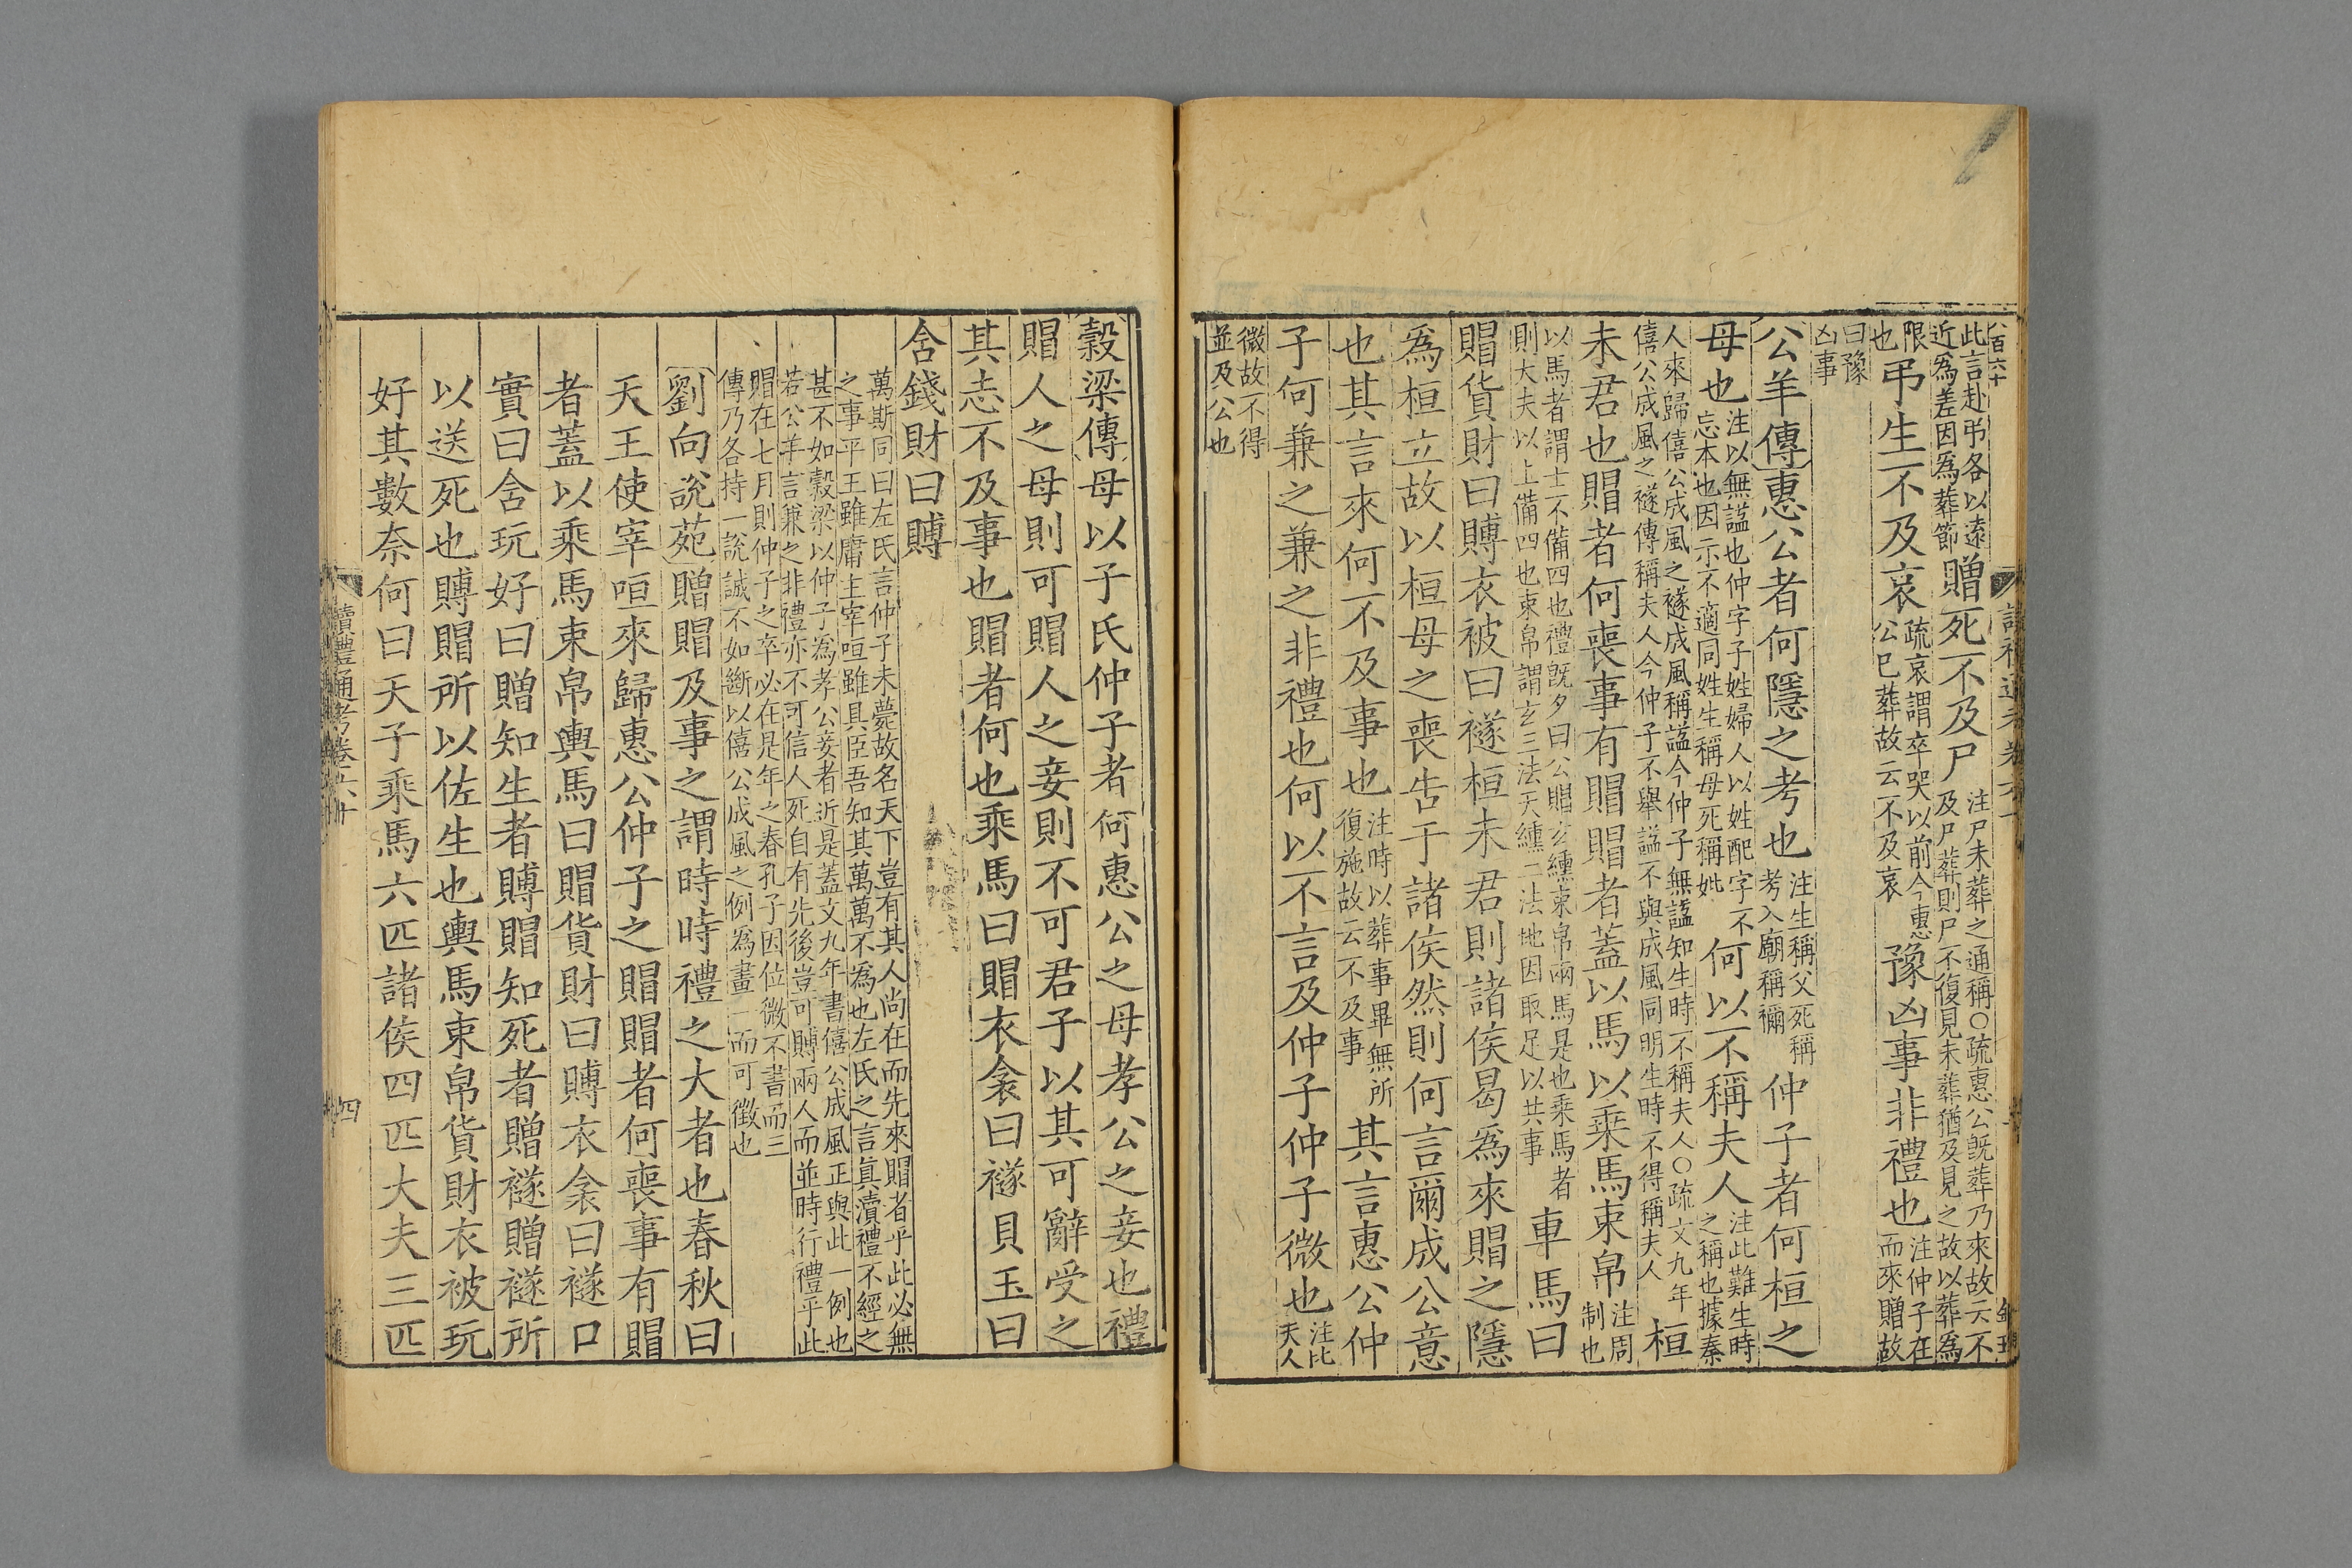 此言赴弔各以遠
近為差因為葬節
贈死不及尸
注尸未葬之通稱○疏惠公旣葬乃來故云不
及尸葬則尸不復見未葬猶及見之故以葬為
限
也
弔生不及哀
疏哀謂卒哭以前今惠
公已葬故云不及哀
豫凶事非禮也
注仲子在
而來贈故
曰豫
凶事
公羊傳惠公者何隱之考也
注生稱父死稱
考入廟稱禰
仲子者何桓之
母也
注以無諡也仲字子姓婦人以姓配字不
忘本也因示不適同姓生稱母死稱妣
何以不稱夫人
注此難生時
之稱也據秦
人來歸僖公成風之襚成風稱諡今仲子無諡知生時不稱夫人○疏文九年
僖公成風之襚傳稱夫人今仲子不舉諡不與成風同明生時不得稱夫人
桓
未君也賵者何喪事有賵賵者蓋以馬以乘馬束帛
注周
制也
以馬者謂士不備四也禮旣夕曰公賵玄纁束帛兩馬是也乘馬者
則大夫以上備四也束帛謂玄三法天纁二法地因取足以共事
車馬曰
賵貨財曰賻衣被曰襚桓未君則諸侯曷爲來賵之隱
爲桓立故以桓母之喪告于諸侯然則何言爾成公意
也其言來何不及事也
注時以葬事畢無所
復施故云不及事
其言惠公仲
子何兼之兼之非禮也何以不言及仲子仲子微也
注比
夫人
微故不得
並及公也
穀梁傳母以子氏仲子者何惠公之母孝公之妾也禮
賵人之母則可賵人之妾則不可君子以其可辭受之
其志不及事也賵者何也乘馬曰賵衣衾曰襚貝玉曰
含錢財曰賻
萬斯同曰左氏言仲子未薨故名天下豈有其人尚在而先來賵者乎此必無
之事平王雖庸主宰咺雖具臣吾知其萬萬不為也左氏之言眞瀆禮不經之
甚不如穀梁以仲子為孝公妾者近是蓋文九年書僖公成風正與此一例也
若公羊言兼之非禮亦不可信人死自有先後豈可賻兩人而並時行禮乎此
賵在七月則仲子之卒必在是年之春孔子因位微不書而三
傳乃各持一說誠不如斷以僖公成風之例為畫一而可徵也
劉向說苑贈賵及事之謂時時禮之大者也春秋曰
天王使宰咺來歸惠公仲子之賵賵者何喪事有賵
者蓋以乘馬束帛輿馬曰賵貨財曰賻衣衾曰襚口
實曰含玩好曰贈知生者賻賵知死者贈襚贈襚所
以送死也賻賵所以佐生也輿馬束帛貨財衣被玩
好其數奈何曰天子乘馬六匹諸侯四匹大夫三匹
讀禮通考卷六十
四